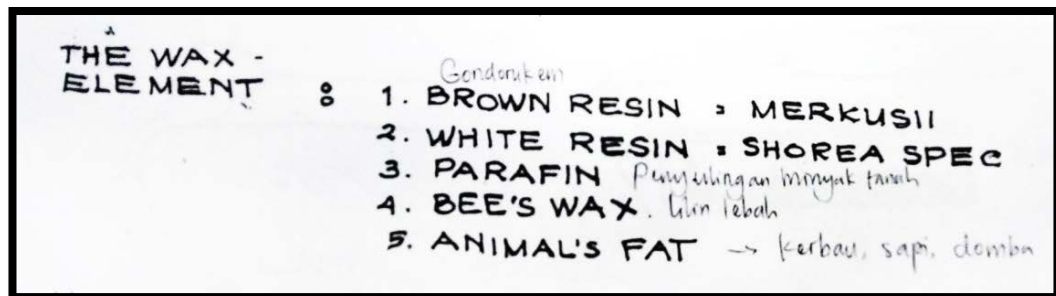 THE WAX -
ELEMENT :
Gondorukem
1. BROWN RESIN : MERKUSII
2. WHITE RESIN : SHOREA SPEC
3. PARAFIN Penyulingan minyak tanah
4. BEE'S WAX. lilin lebah
5. ANIMAL'S FAT → kerbau, sapi, domba